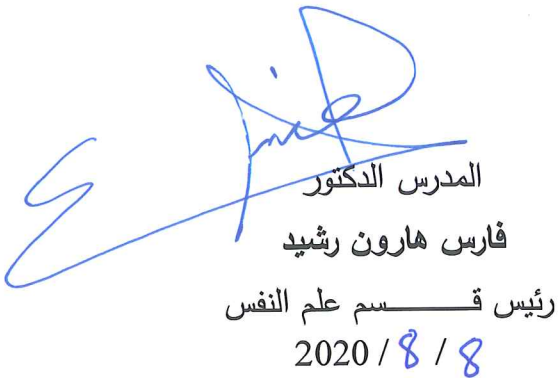 المدرس الدكتور
فارس هارون رشيد
رئيس قـــــــسم علم النفس
2020 / 8 / 8